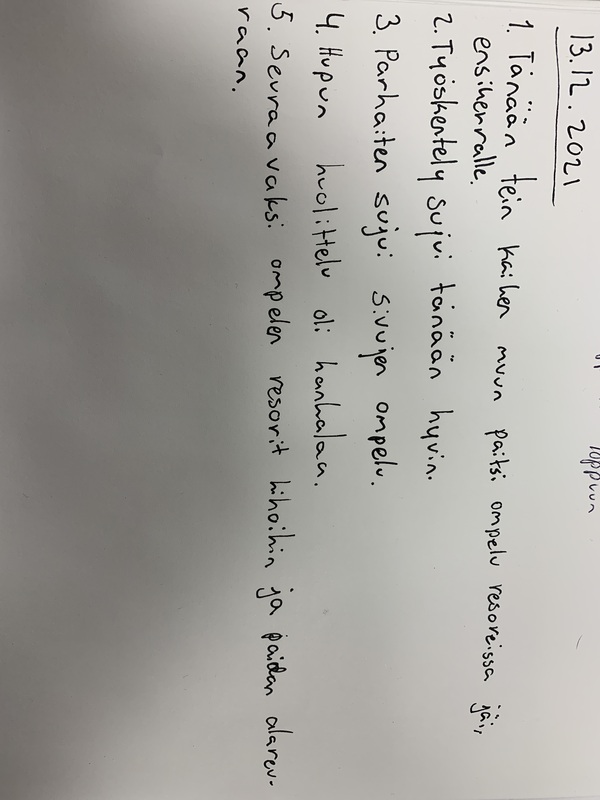 loppuun
13.12.2021
1. Tänään tein kaiken muun paitsi ompelu resoreissa jäi,
ensikerralle.
2. Työskentely sujui tänään hyvin.
3. Parhaiten sujui sivujen ompelu.
4. Hupun huolittelu oli hankalaa.
5. Seuraavaksi ompelen resorit hihoihin ja paidan alareu-
raan.